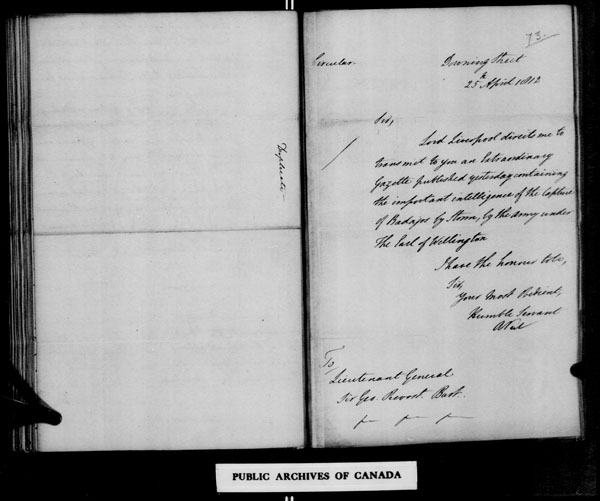 Duplicate
73.
Circular.
Downing Street
25th April 1812
Sir,
Lord Liverpool directs me to
transmit to you an Extraordinary
Gazette published yesterday containing
the important intelligence of the Capture
of Badajos by Storm, by the army under
The Earl of Wellington
I have the honour to be,
Sir,
Your Most Obedient,
Humble Servant
To,
Lieutenant General
Sir Geo. Prevost. Bart.
PUBLIC ARCHIVES OF CANADA